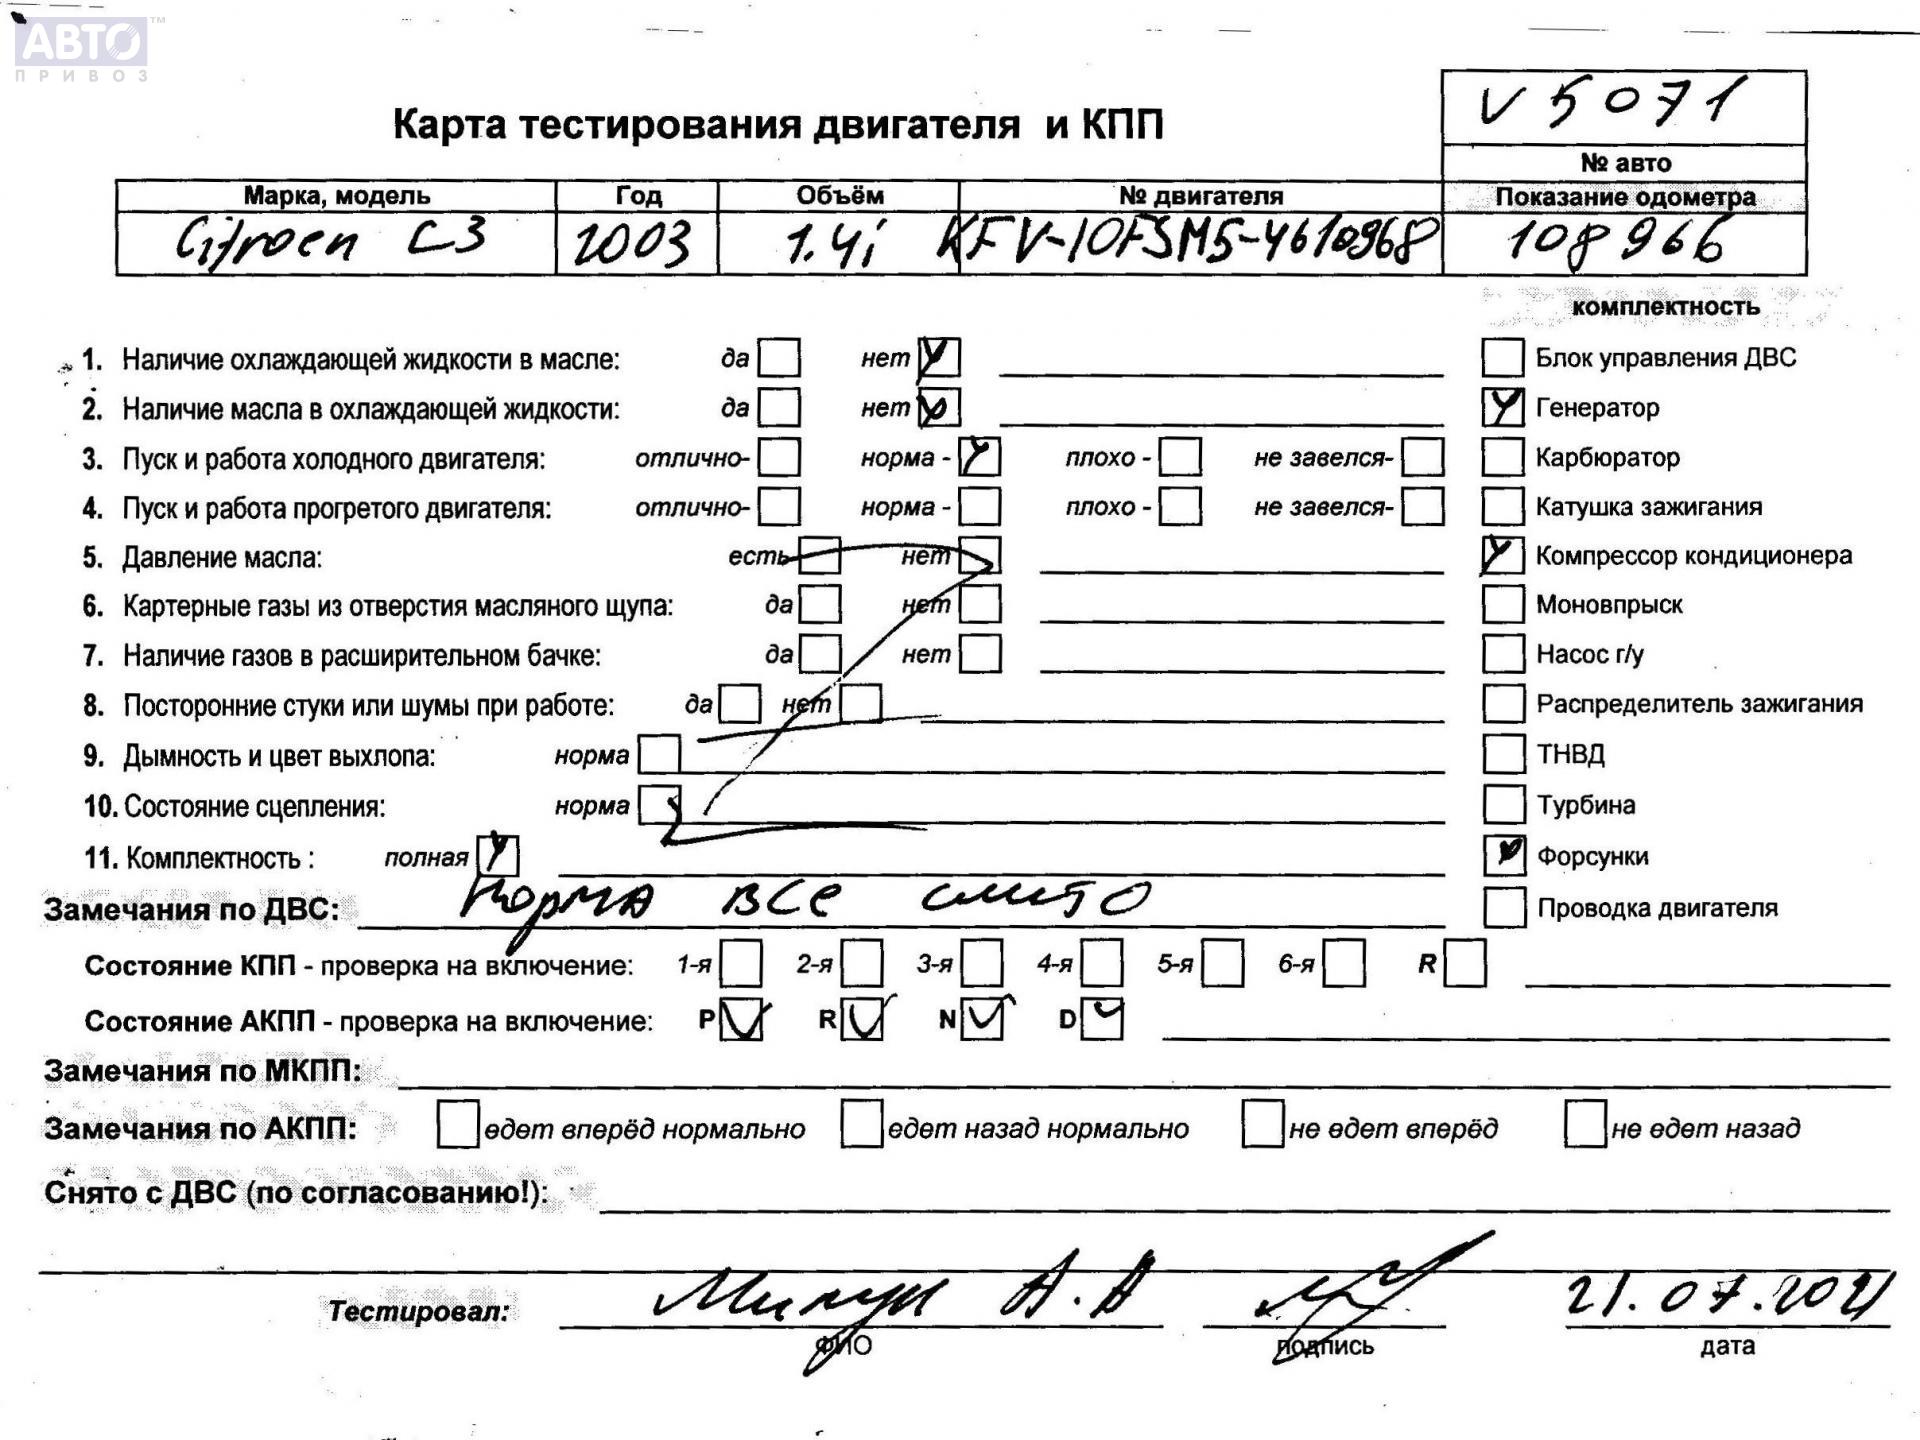 АВТО™
ПРИВОЗ
V5071
Карта тестирования двигателя и КПП
№ авто
Марка, модель Год Объём № двигателя Показание одометра
Citroen C3 2003 1.4i KFV-10FSM5-4610968 108966
комплектность
1. Наличие охлаждающей жидкости в масле: да нет Блок управления ДВС
2. Наличие масла в охлаждающей жидкости: да нет Генератор
3. Пуск и работа холодного двигателя: отлично- норма - плохо - не завелся- Карбюратор
4. Пуск и работа прогретого двигателя: отлично- норма - плохо - не завелся- Катушка зажигания
5. Давление масла: есть нет Компрессор кондиционера
6. Картерные газы из отверстия масляного щупа: да нет Моновпрыск
7. Наличие газов в расширительном бачке: да нет Насос г/у
8. Посторонние стуки или шумы при работе: да нет Распределитель зажигания
9. Дымность и цвет выхлопа: норма ТНВД
10. Состояние сцепления: норма Турбина
11. Комплектность : полная Форсунки
Замечания по ДВС: Норма все слито Проводка двигателя
Состояние КПП - проверка на включение: 1-я 2-я 3-я 4-я 5-я 6-я R
Состояние АКПП - проверка на включение: P R N D
Замечания по МКПП:
Замечания по АКПП: едет вперёд нормально едет назад нормально не едет вперёд не едет назад
Снято с ДВС (по согласованию!):
Тестировал: А.А 21.07.2021
ФИО подпись дата